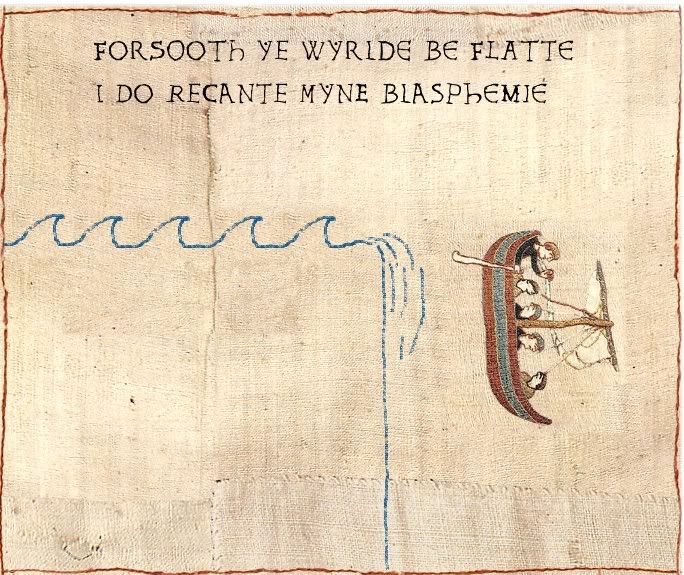 FORSOOTH YE WYRLDE BE FLATTE
I DO RECANTE MYNE BLASPHEMIE